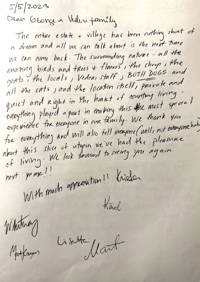 5/5/2023
Dear George & Videu family
The entire estate + village has been nothing short of
a dream and all we can talk about is the next time
we can come back. The surrounding nature - all the
exciting birds and trees + flowers, the chirps, the
goats, the locals, staff, BOTH DOGS and
all the cats, and the location itself, private and
quiet and right in the heart of country living.
everything played a part in making this the most special
experience for everyone in our family. We thank you
for everything and will also tell everyone (well, not everyone haha)
about this slice of utopia we've had the pleasure
of living. We look forward to seeing you again
next year!!
With much appreciation!!
Whitney
Lisette